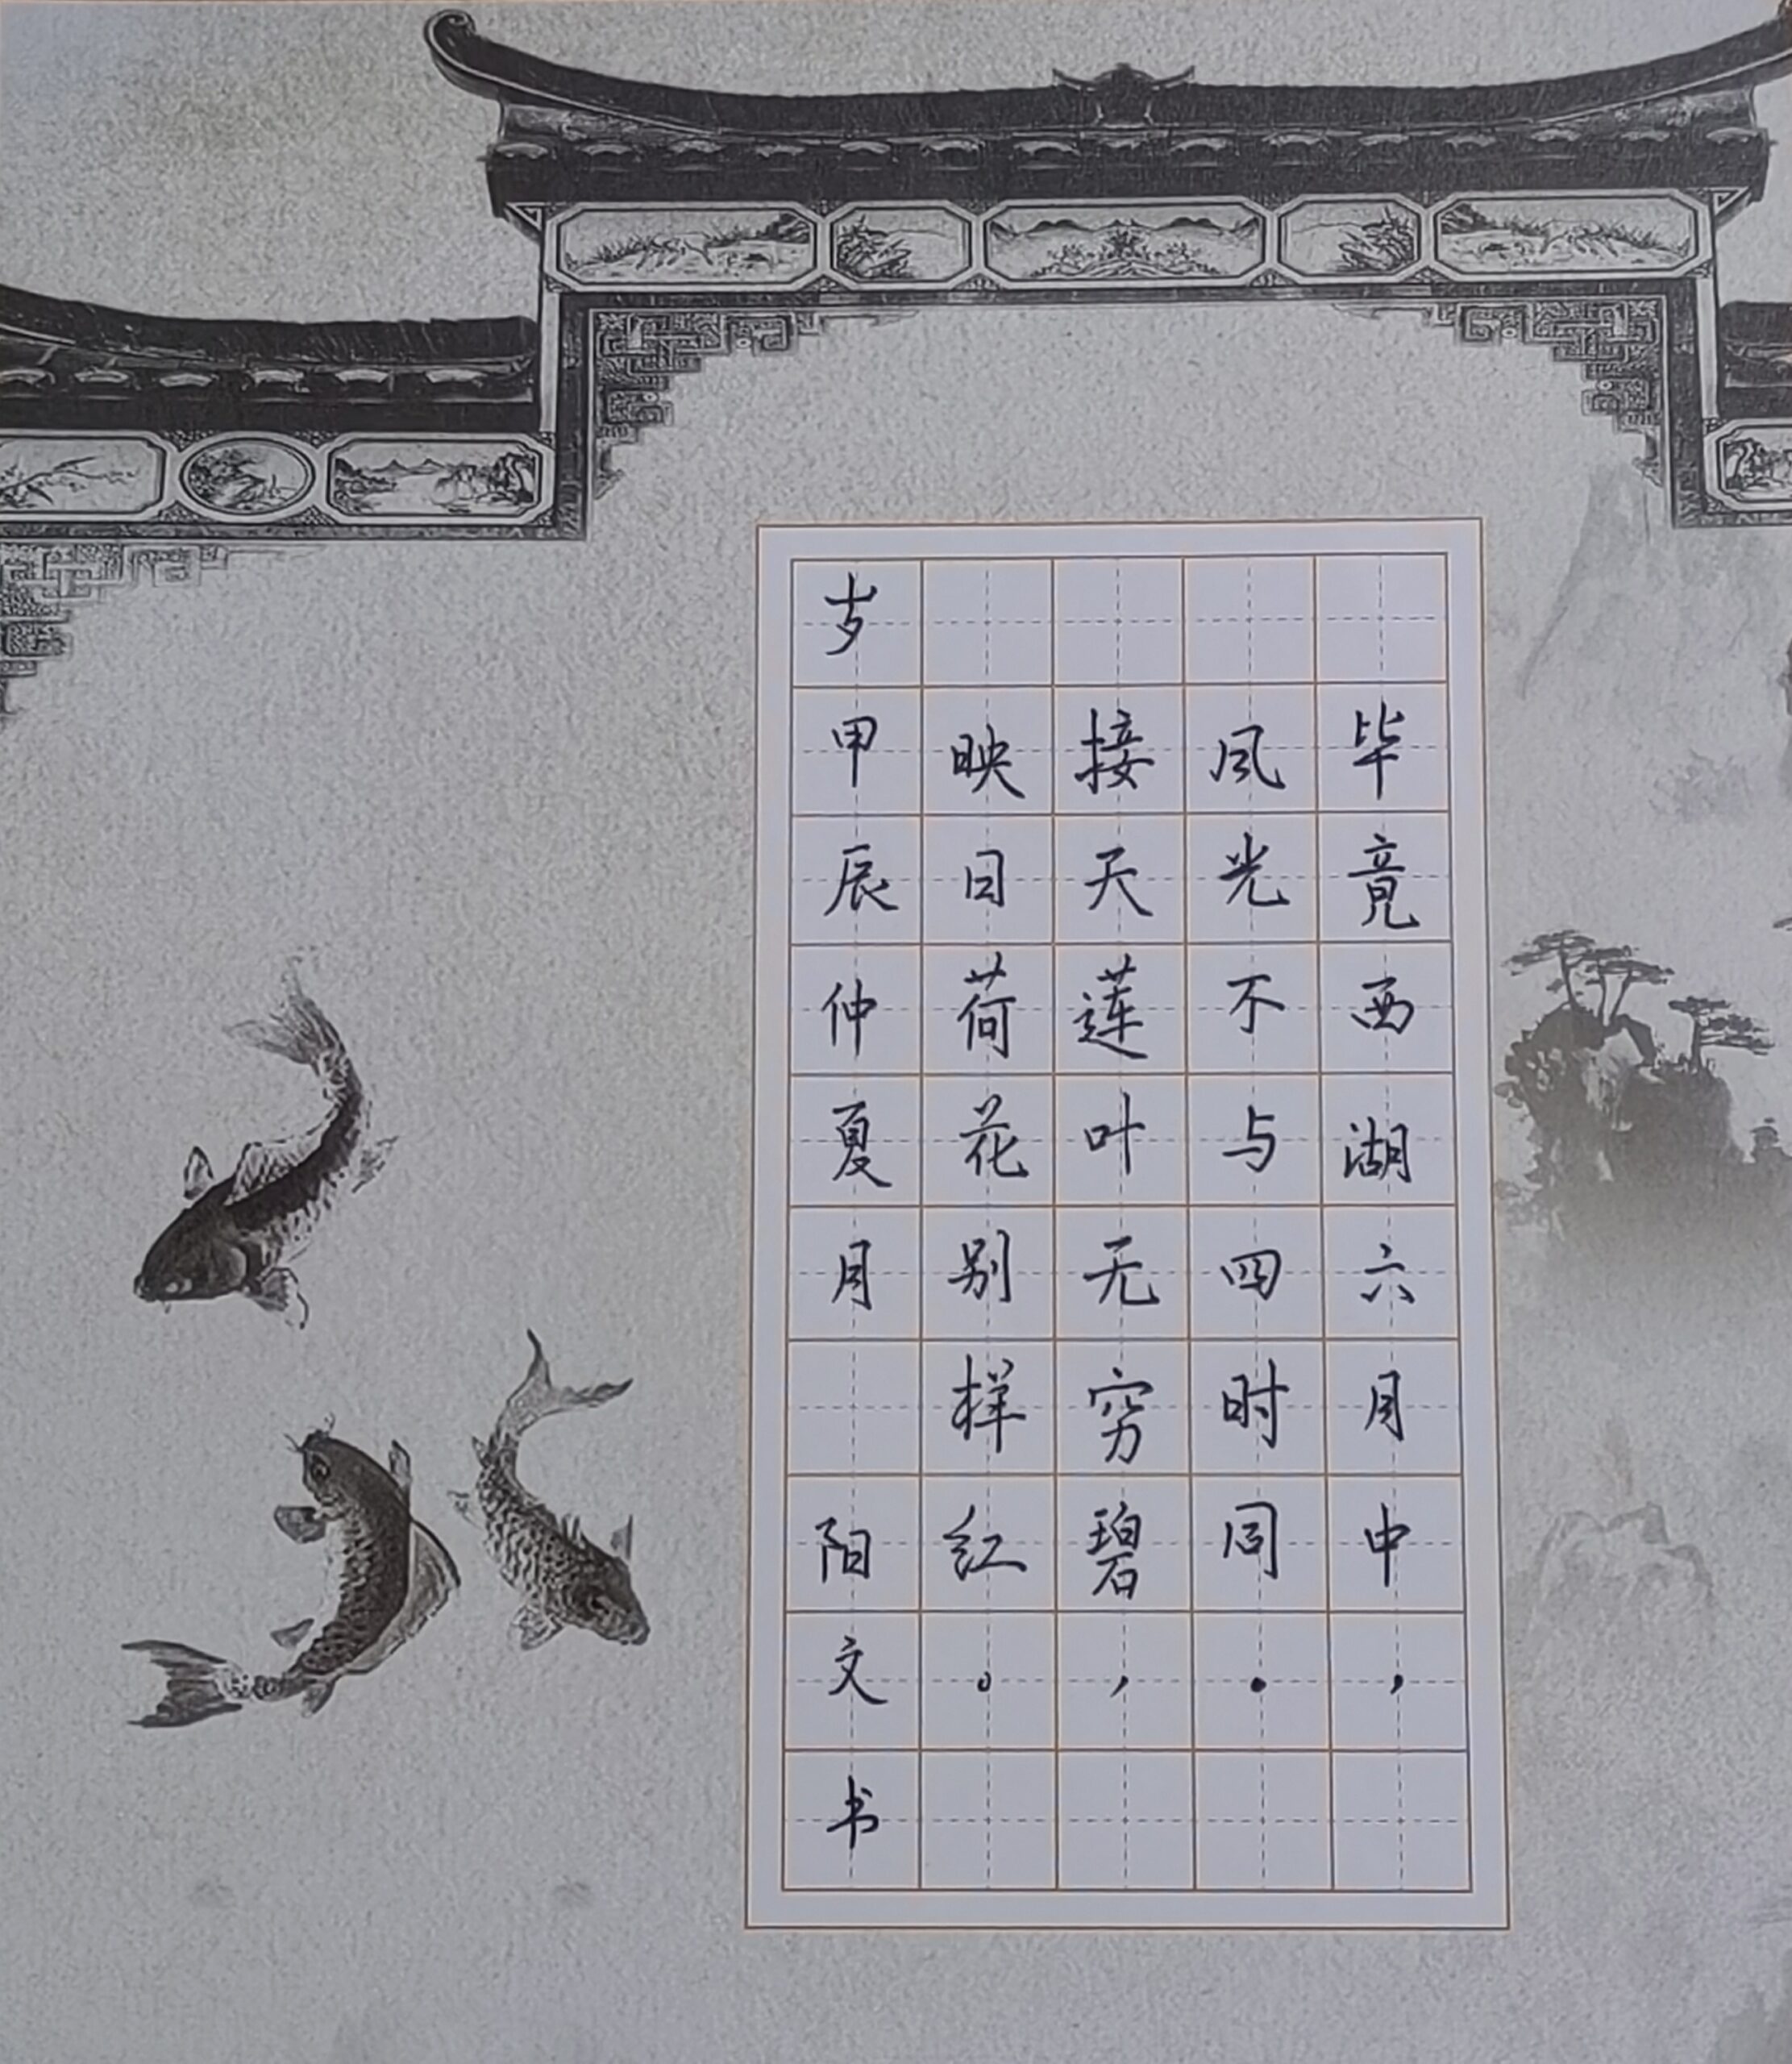 毕竟西湖六月中，
风光不与四时同。
接天莲叶无穷碧，
映日荷花别样红。
岁甲辰仲夏月 阳文书